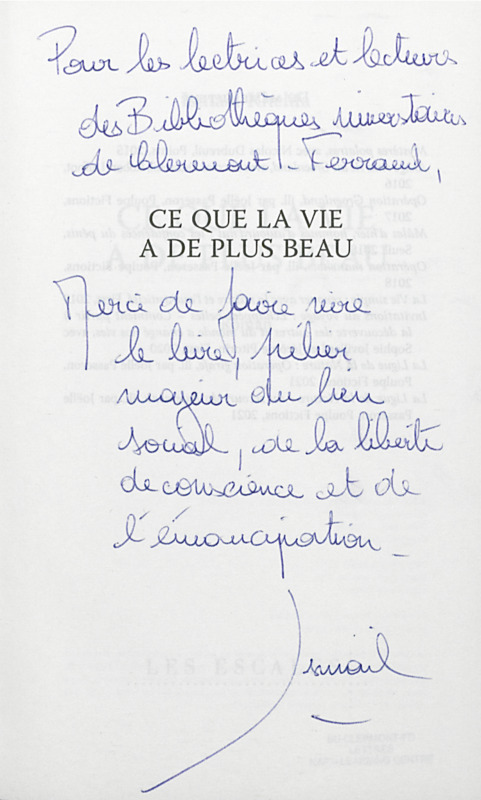 Pour les lectrices et lecteurs
des Bibliothèques universitaires
de Clermont-Ferrand,
CE QUE LA VIE
A DE PLUS BEAU
Merci de faire vivre
le livre, pilier
majeur du lien
social, de la liberté
de conscience et de
l'émancipation_
Ismaël